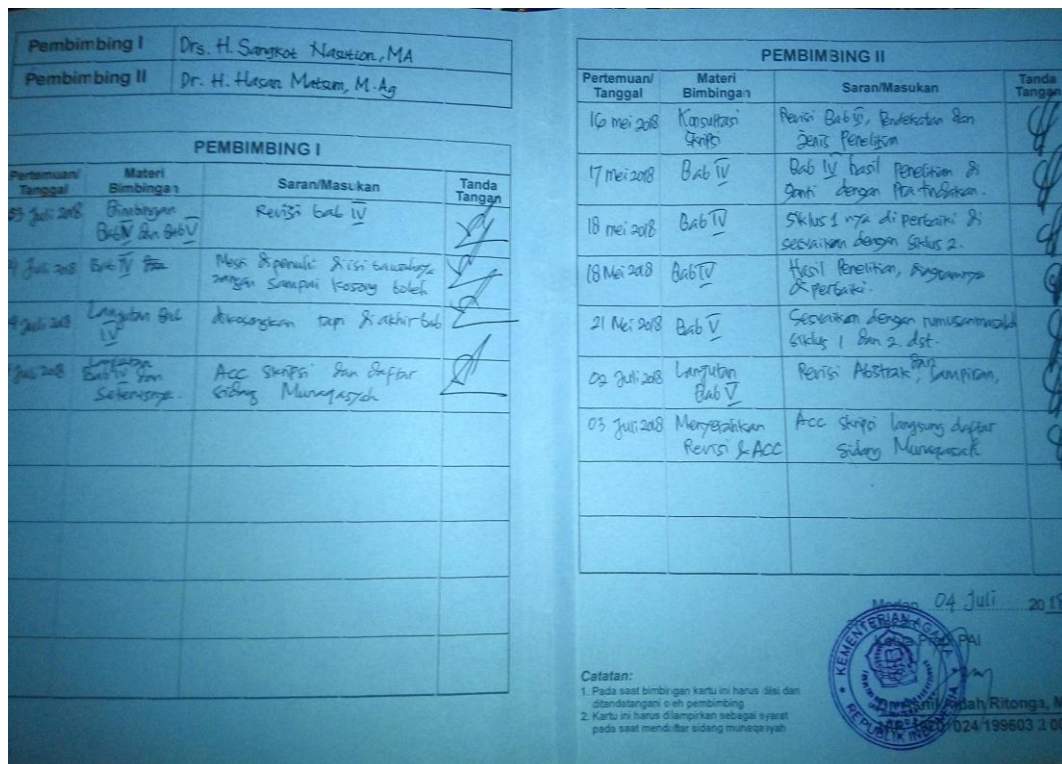 Pembimbing I Drs. H. Sangkot Nasution, MA
Pembimbing II Dr. H. Hasan Matsum, M.Ag
PEMBIMBING I
Pertemuan/ Tanggal Materi Bimbingan Saran/Masukan Tanda Tangan
03 Juli 2018 Bimbingan Revisi bab IV
Bab IV dan Bab V
Juli 2018 Bab IV Mesti dipenuhi diisi bawahnya
jangan sampai kosong boleh
Juli 2018 Lanjutan Bab dikosongkan tapi diakhir bab
IV
Juli 2018 Lanjutan Acc skripsi dan daftar
Bab IV dan sidang Munaqasyah
Seterusnya.
PEMBIMBING II
Pertemuan/ Tanggal Materi Bimbingan Saran/Masukan Tanda Tangan
16 mei 2018 Konsultasi Revisi Bab, Pendekatan dan
Skripsi Jenis Penelitian
17 mei 2018 Bab IV Bab IV hasil Penelitian di
ganti dengan Pra tindakan.
18 mei 2018 Bab IV Siklus 1 nya di perbaiki di
sesuaikan dengan Siklus 2.
18 Mei 2018 Bab IV Hasil Penelitian, diagramnya
diperbaiki.
21 Mei 2018 Bab V Sesuaikan dengan rumusan masalah
siklus 1 dan 2. dst.
02 Juli 2018 Lanjutan Revisi Abstrak, dan Lampiran,
Bab V
03 Juli 2018 Menyerahkan Acc skripsi langsung daftar
Revisi & ACC sidang Munaqasah
Medan, 04 Juli 2018
PAI
KEMENTERIAN AGAMA
REPUBLIK INDONESIA
Ritonga, M
024 199603 2 00
Catatan:
1. Pada saat bimbingan kartu ini harus diisi dan
ditandatangani oleh pembimbing
2. Kartu ini harus dilampirkan sebagai syarat
pada saat mendaftar sidang munaqasyah